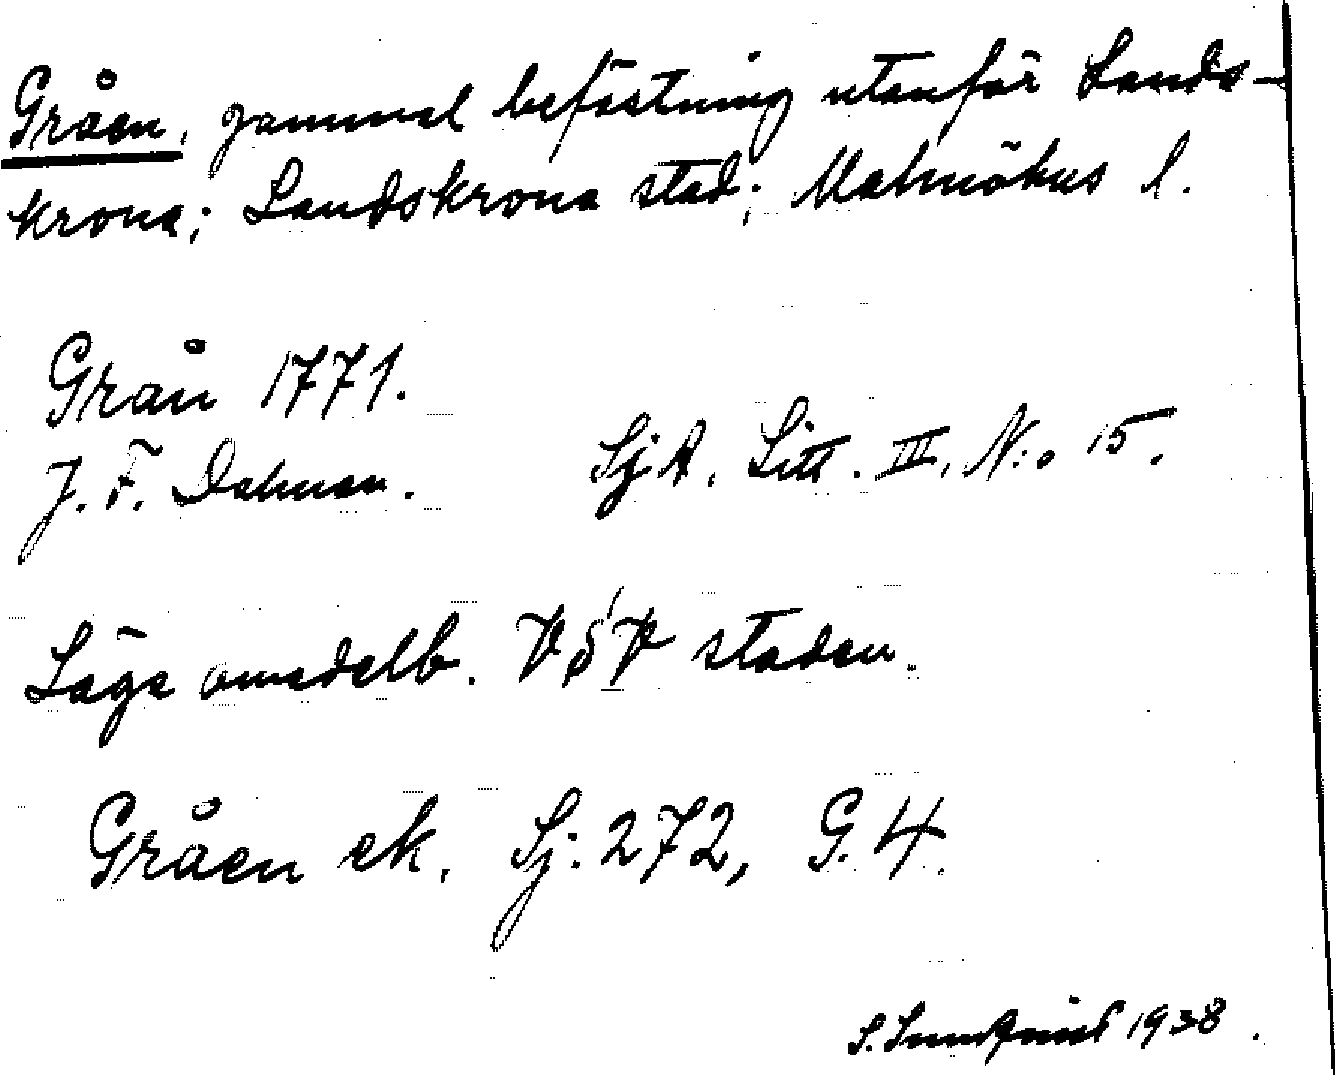 Gråen, gammal befästning utanför Lands-
krona; Landskrona stad; Malmöhus l.
Grån 1771.
J. F. Dalman. SjA, Litt. III, N:o 15.
Läge omedelb. V S V staden.
Gråen ek. Sj. 272, G. 4.
S. Lundquist 1938.